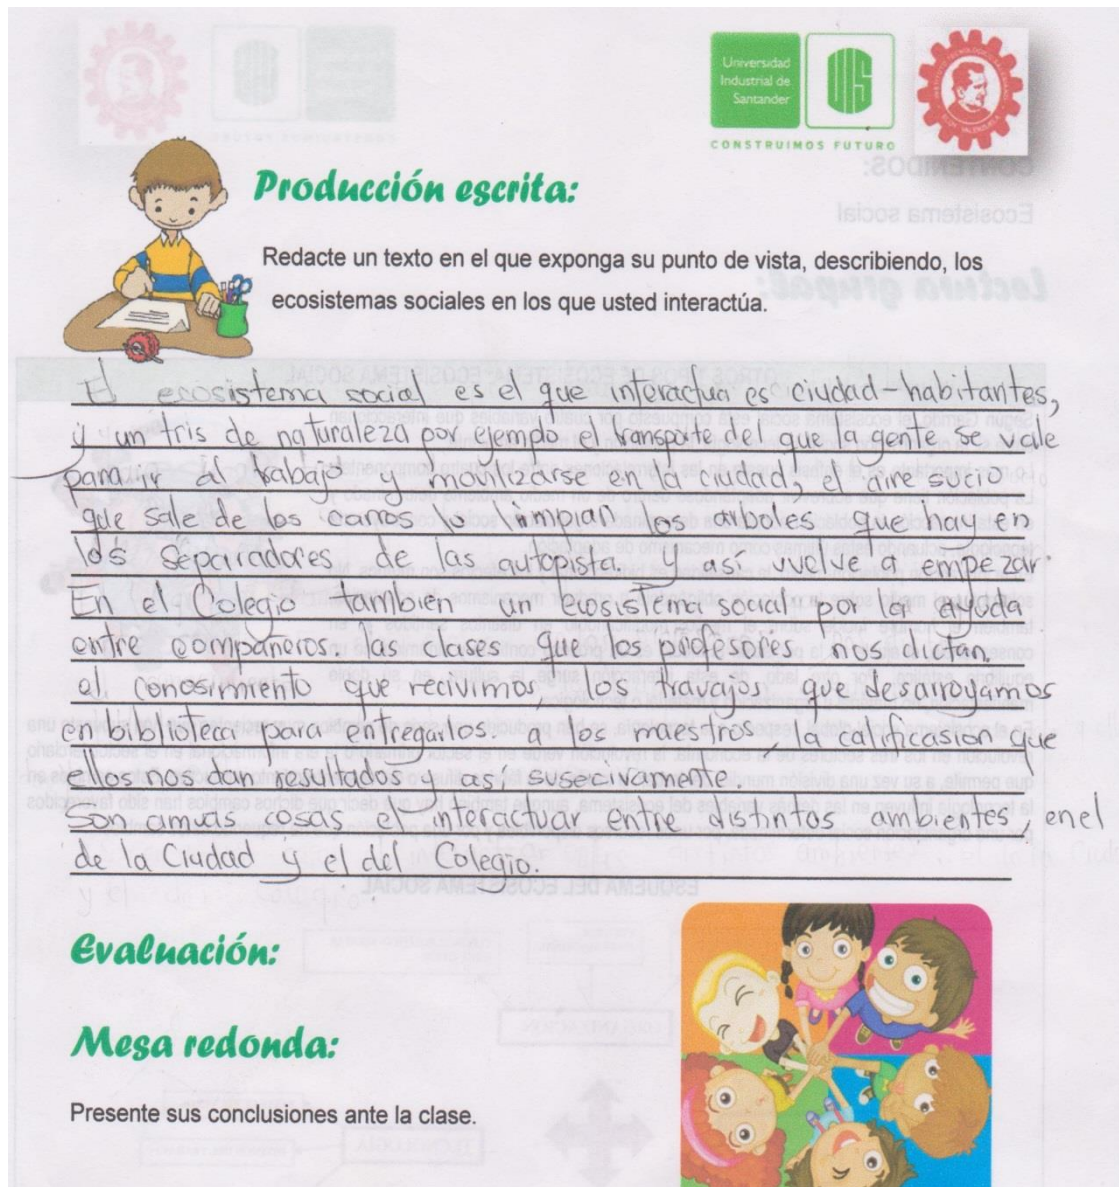 Universidad
Industrial de
Santander
UIS
CONSTRUIMOS FUTURO
Producción escrita:
Redacte un texto en el que exponga su punto de vista, describiendo, los
ecosistemas sociales en los que usted interactúa.
El ecosistema social es el que interactua es ciudad-habitantes,
y un tris de naturaleza por ejemplo el transporte en que la gente se vale
para ir al trabajo y movilizarse en la ciudad, el aire sucio
que sale de los carros lo limpian los arboles que hay en
los separadores de las autopista y así vuelve a empezar.
En el Colegio también un ecosistema social por la ayuda
entre compañeros las clases que los profesores nos dictan,
el conosimiento que recivimos, los travajos que desarroyamos
en biblioteca para entregarlos a los maestros y la calificasion que
ellos nos dan resultados y asi susecivamente.
Son amvas cosas el interactuar entre distintos ambientes, en el
de la Ciudad y el del Colegio.
Evaluación:
Mesa redonda:
Presente sus conclusiones ante la clase.